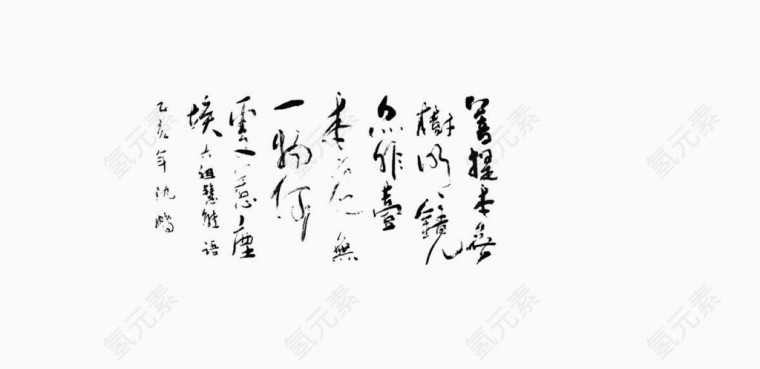 菩提本無
樹明鏡
亦非臺
本来無
一物何
處惹塵
埃 六祖慧能語
乙亥年沈鵬
氢元素
氢元素
氢元素
氢元素
氢元素
氢元素
氢元素
氢元素